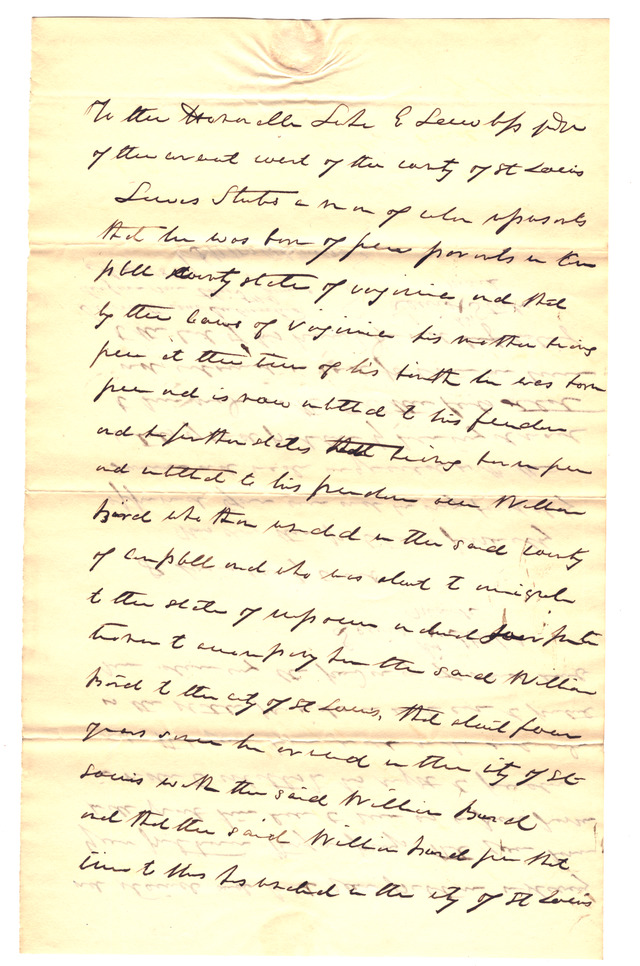 To the Honorable Luke E Lawless judge
of the circuit court of the county of St Louis
Lewis a man of color represents
that he was born of free parents in Cam
pbell county state of Virginia and that
by the laws of Virginia his mother being
free at the time of his birth he was born
free and is now entitled to his freedom
and he further states that being born free
and entitled to his freedom one William
Bard who then resided in the said county
of Campbell and who was about to emigrate
to the state of Missouri induced your petit
tioner to accompany him the said William
Bard to the city of St Louis, that about four
years since he arrived in the city of St
Louis with the said William Bard
and that the said William Bard from that
time to this has resided in the city of St Louis